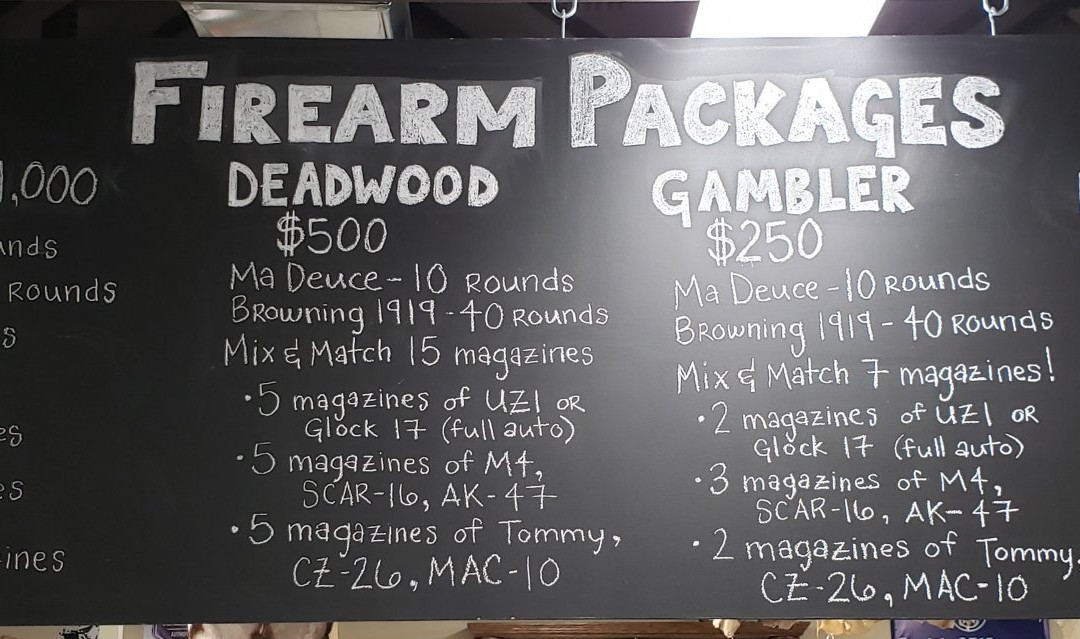 FIREARM PACKAGES
1,000
unds
ROUNDS
s
es
es
ines
DEADWOOD
$500
Ma Deuce - 10 ROUNDS
BROWNing 1919 - 40 ROUNDS
Mix & Match 15 magazines
• 5 magazines of UZI OR
Glock 17 (full auto)
• 5 magazines of M4,
SCAR-16, AK-47
• 5 magazines of Tommy,
CZ-26, MAC-10
GAMBLER
$250
Ma Deuce - 10 ROUNDS
BROWNing 1919 - 40 ROUNDS
Mix & Match 7 magazines!
• 2 magazines of UZI OR
Glock 17 (full auto)
• 3 magazines of M4,
SCAR-16, AK-47
• 2 magazines of Tommy,
CZ-26, MAC-10